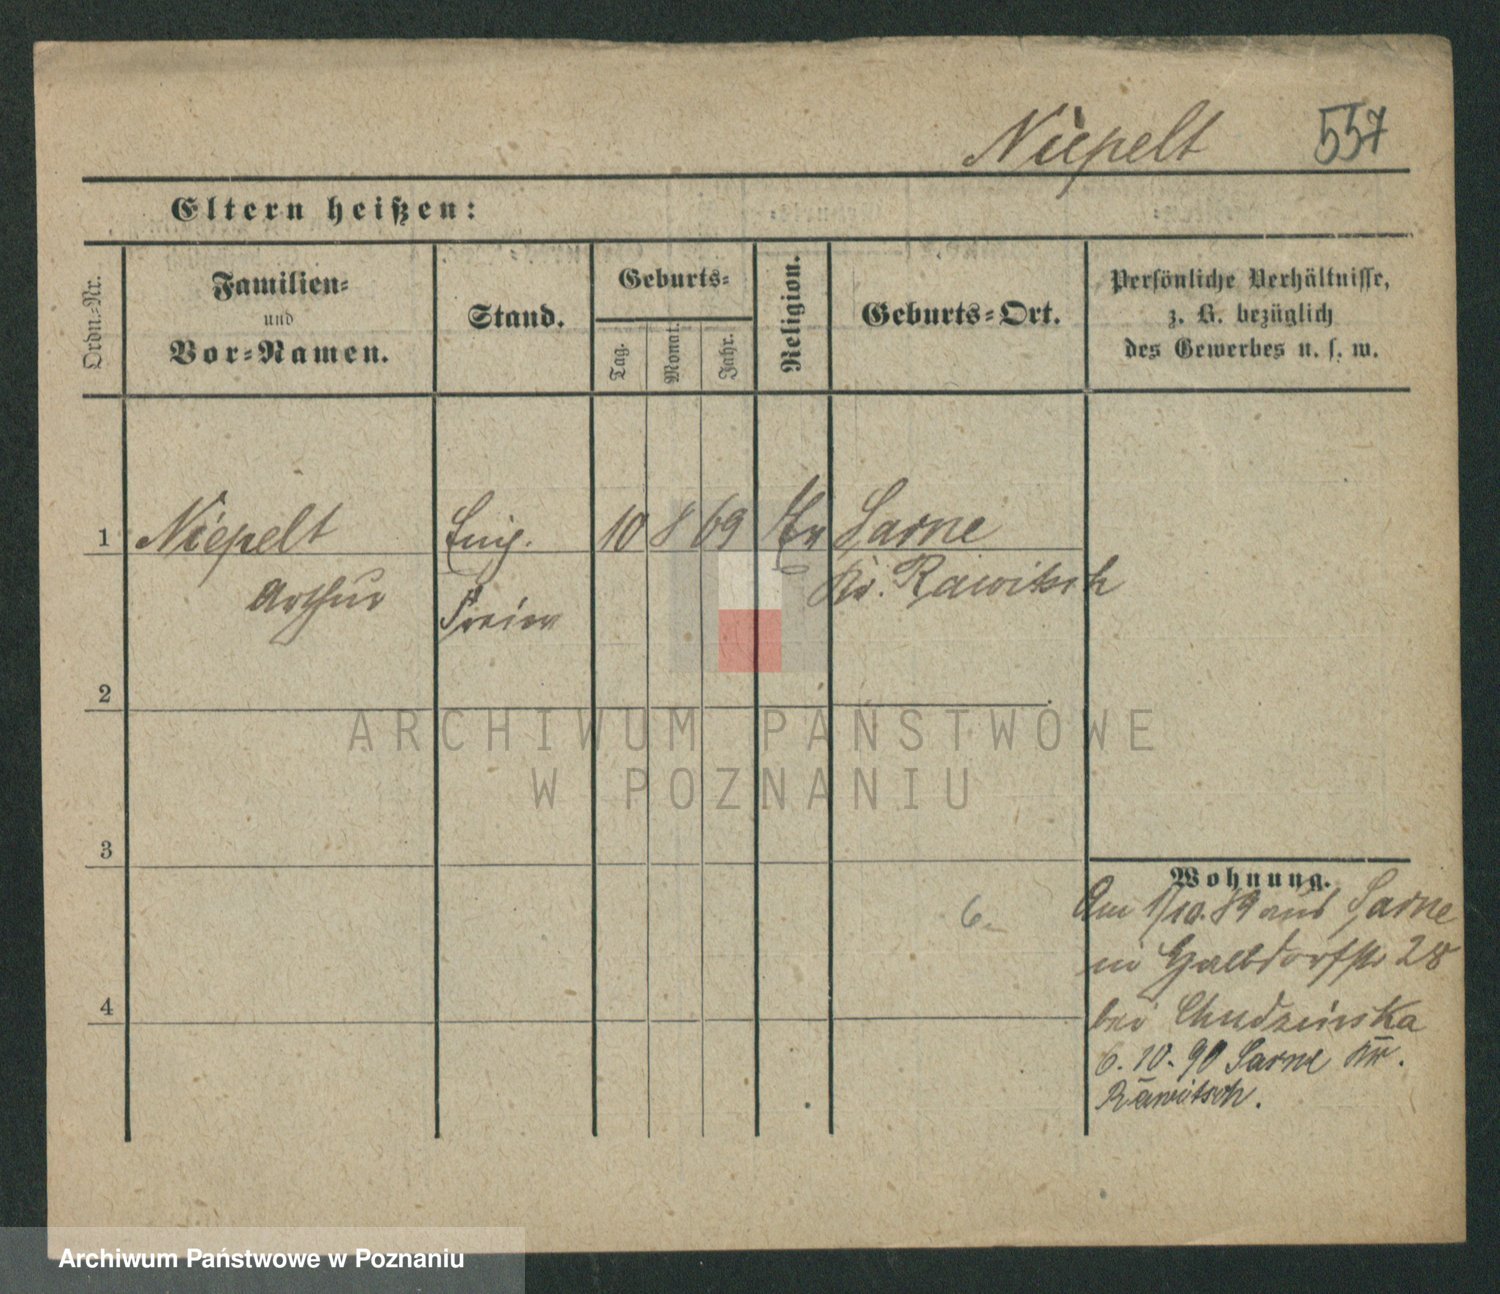 Niepelt 557
Eltern heißen:
Ordn.-Nr.
Familien=
und
Vor=Namen.
Stand.
Geburts=
Tag.
Monat.
Jahr.
Religion.
Geburts=Ort.
Persönliche Verhältnisse,
z. B. bezüglich
des Gewerbes u. s. w.
1 Niepelt 10 8 69 Sarne
Arthur Kr. Rawitsch
2
3
4
Wohnung.
Am 1/10. 89 aus Sarne
in 28
bei Chudzinska
6. 10. 90 Sarne Kr.
Rawitsch.
ARCHIWUM PAŃSTWOWE
W POZNANIU
Archiwum Państwowe w Poznaniu